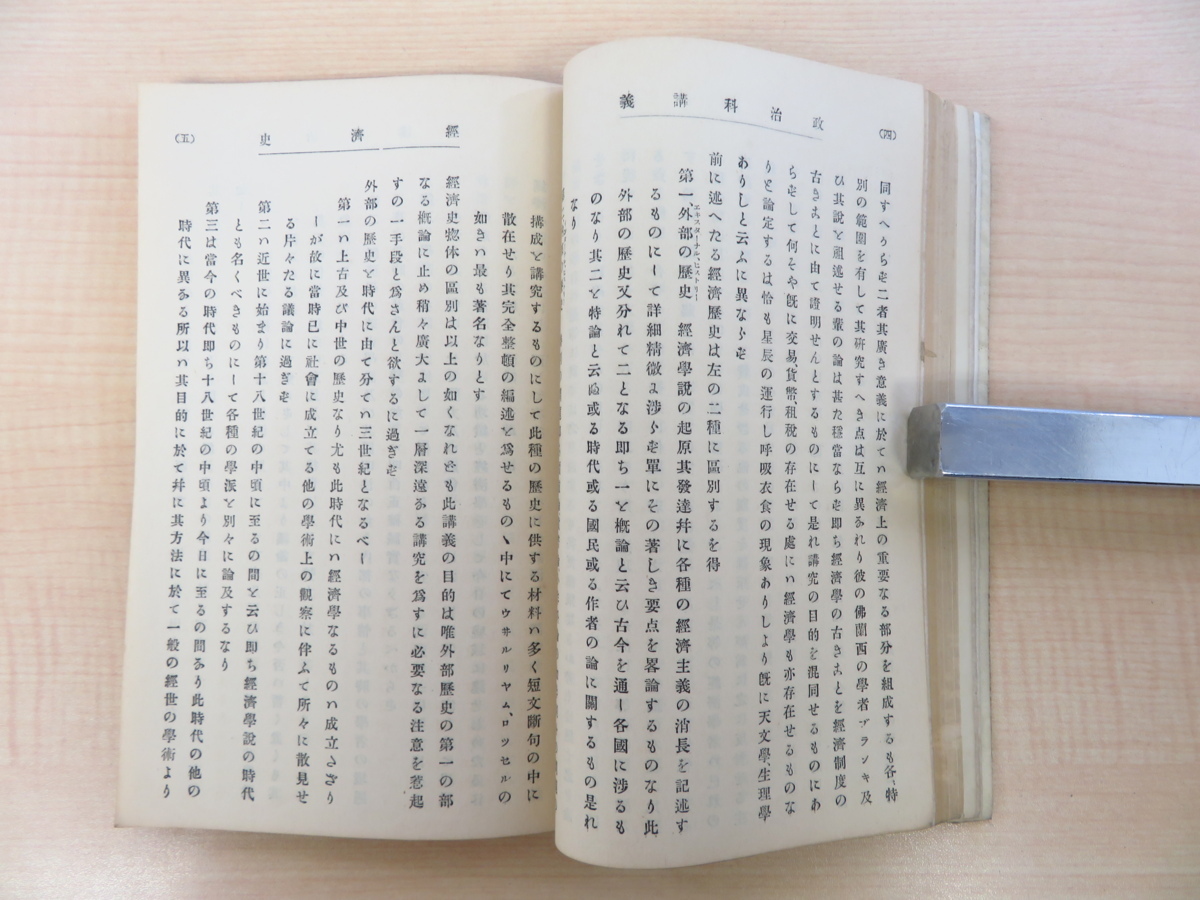 (四)
政治科講義
同すへうらを二者其廣き意義に於てハ經濟上の重要なる部分を組成するも各、特
別の範圍を有して其硏究すへき点は互に異るれり彼の佛蘭西の學者ブランキ及
ひ其說と祖述せる輩の論は甚た穩當ならを卽ち經濟學の古きことを經濟制度の
古きことに由て證明せんとするものにして是れ講究の目的を混同せるものにあ
らをして何そや旣に交易、貨幣、租稅の存在せる處にハ經濟學も亦存在せるものな
りと論定するは恰も星辰の運行し呼吸衣食の現象ありしより旣に天文學、生理學
ありしと云ふに異ならを
前に述へたる經濟歷史は左の二種に區別するを得
第一、外部の歷史 經濟學說の起原其發達幷に各種の經濟主義の消長を記述す
エキスターナル、ヒストリー
るものにして詳細精微に涉らを單にその著しき要点を畧論するものなり此
外部の歷史又分れて二となる卽ち一と槪論と云ひ古今を通し各國に涉るも
のなり其二と特論と云ぬ或る時代或る國民或る作者の論に關するもの是れ
なり
經濟史
(五)
構成と講究するものにして此種の歷史に供する材料ハ多く短文斷句の中に
散在せり其完全整頓の編述と爲せるものヽ中にてウ井ルリヤム、ロツセルの
如きハ最も著名なりとす
經濟史惣体の區別は以上の如くなれども此講義の目的は唯外部歷史の第一の部
なる槪論に止め稍々廣大よして一層深遠なる講究を爲すに必要なる注意を惹起
すの一手段と爲さんと欲するに過ぎを
外部の歷史と時代に由て分てハ三世紀となるべし
第一ハ上古及び中世の歷史なり尤も此時代にハ經濟學なるものハ成立さざり
しが故に當時已に社會に成立てる他の學術上の觀察に伴ふて所々に散見せ
る片々たる議論に過ぎを
第二ハ近世に始まり第十八世紀の中頃に至るの間と云ひ卽ち經濟學說の時代
とも名くべきものにして各種の學派と別々に論及するなり
第三は當今の時代卽ち十八世紀の中頃より今日に至るの間なり此時代の他の
時代に異なる所以ハ其目的に於て幷に其方法に於て一般の經世の學術より